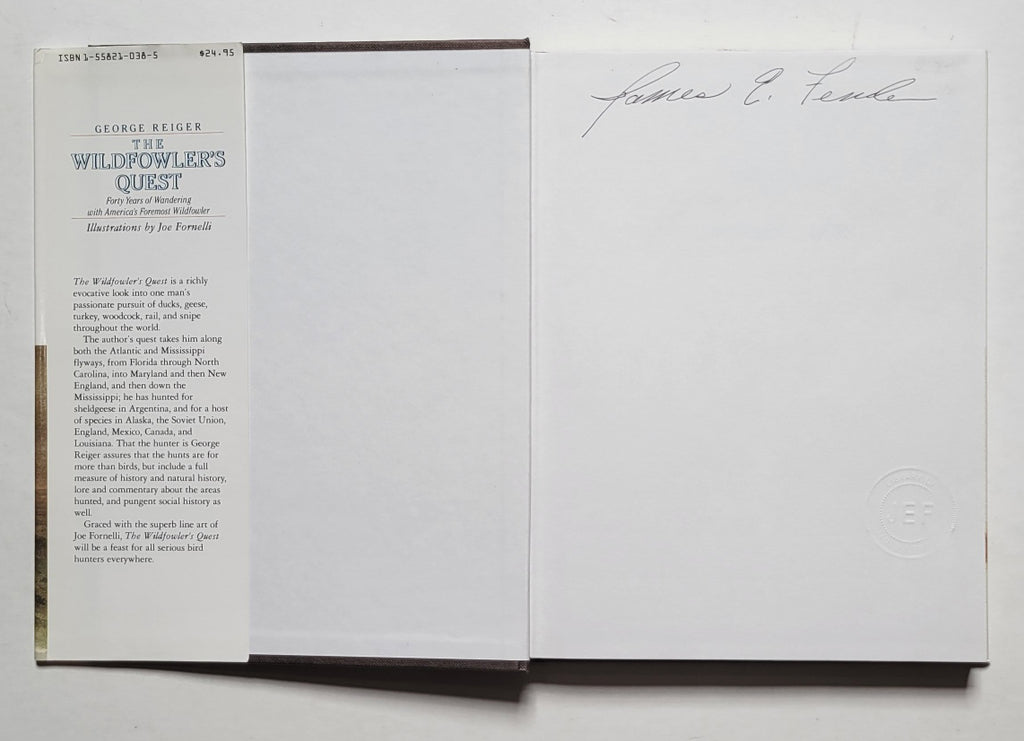 ISBN 1-55821-038-5 $24.95
GEORGE REIGER
THE
WILDFOWLER'S
QUEST
Forty Years of Wandering
with America's Foremost Wildfowler
Illustrations by Joe Fornelli
The Wildfowler's Quest is a richly
evocative look into one man's
passionate pursuit of ducks, geese,
turkey, woodcock, rail, and snipe
throughout the world.
The author's quest takes him along
both the Atlantic and Mississippi
flyways, from Florida through North
Carolina, into Maryland and then New
England, and then down the
Mississippi; he has hunted for
sheldgeese in Argentina, and for a host
of species in Alaska, the Soviet Union,
England, Mexico, Canada, and
Louisiana. That the hunter is George
Reiger assures that the hunts are for
more than birds, but include a full
measure of history and natural history,
lore and commentary about the areas
hunted, and pungent social history as
well.
Graced with the superb line art of
Joe Fornelli, The Wildfowler's Quest
will be a feast for all serious bird
hunters everywhere.
James E.
JEF